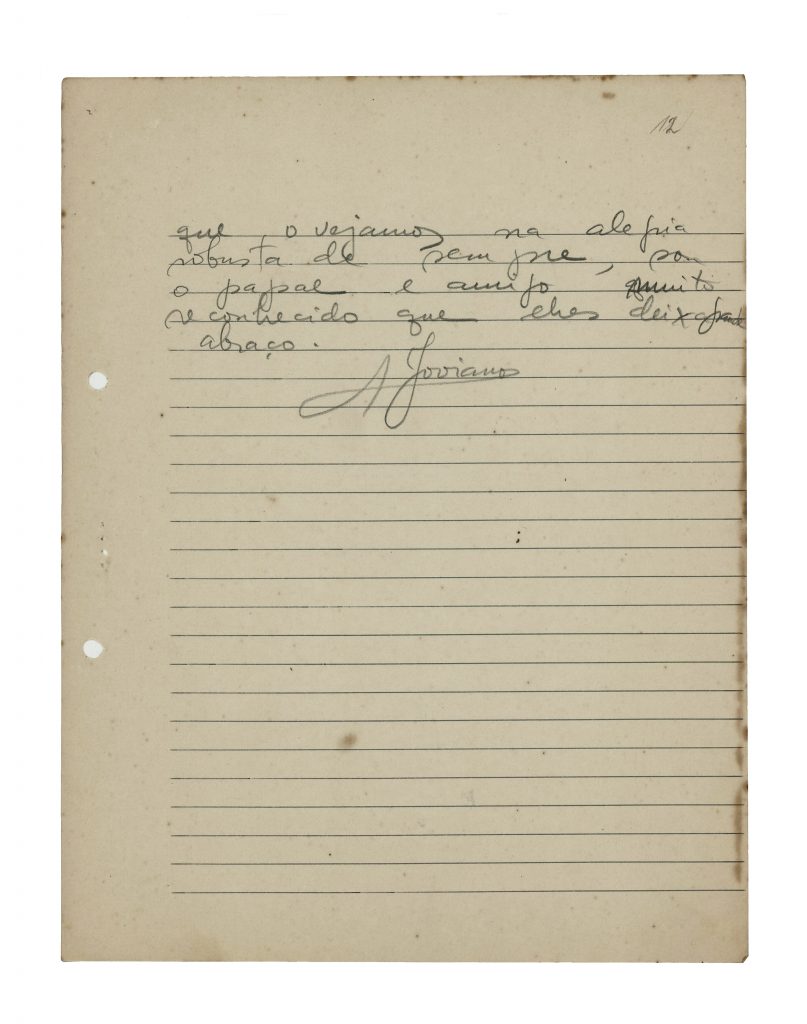 12
que o vejamos na alegria
robusta de sempre, sou
o papae e amigo muito
reconhecido que lhes deixa grande
abraço.
A Joviano